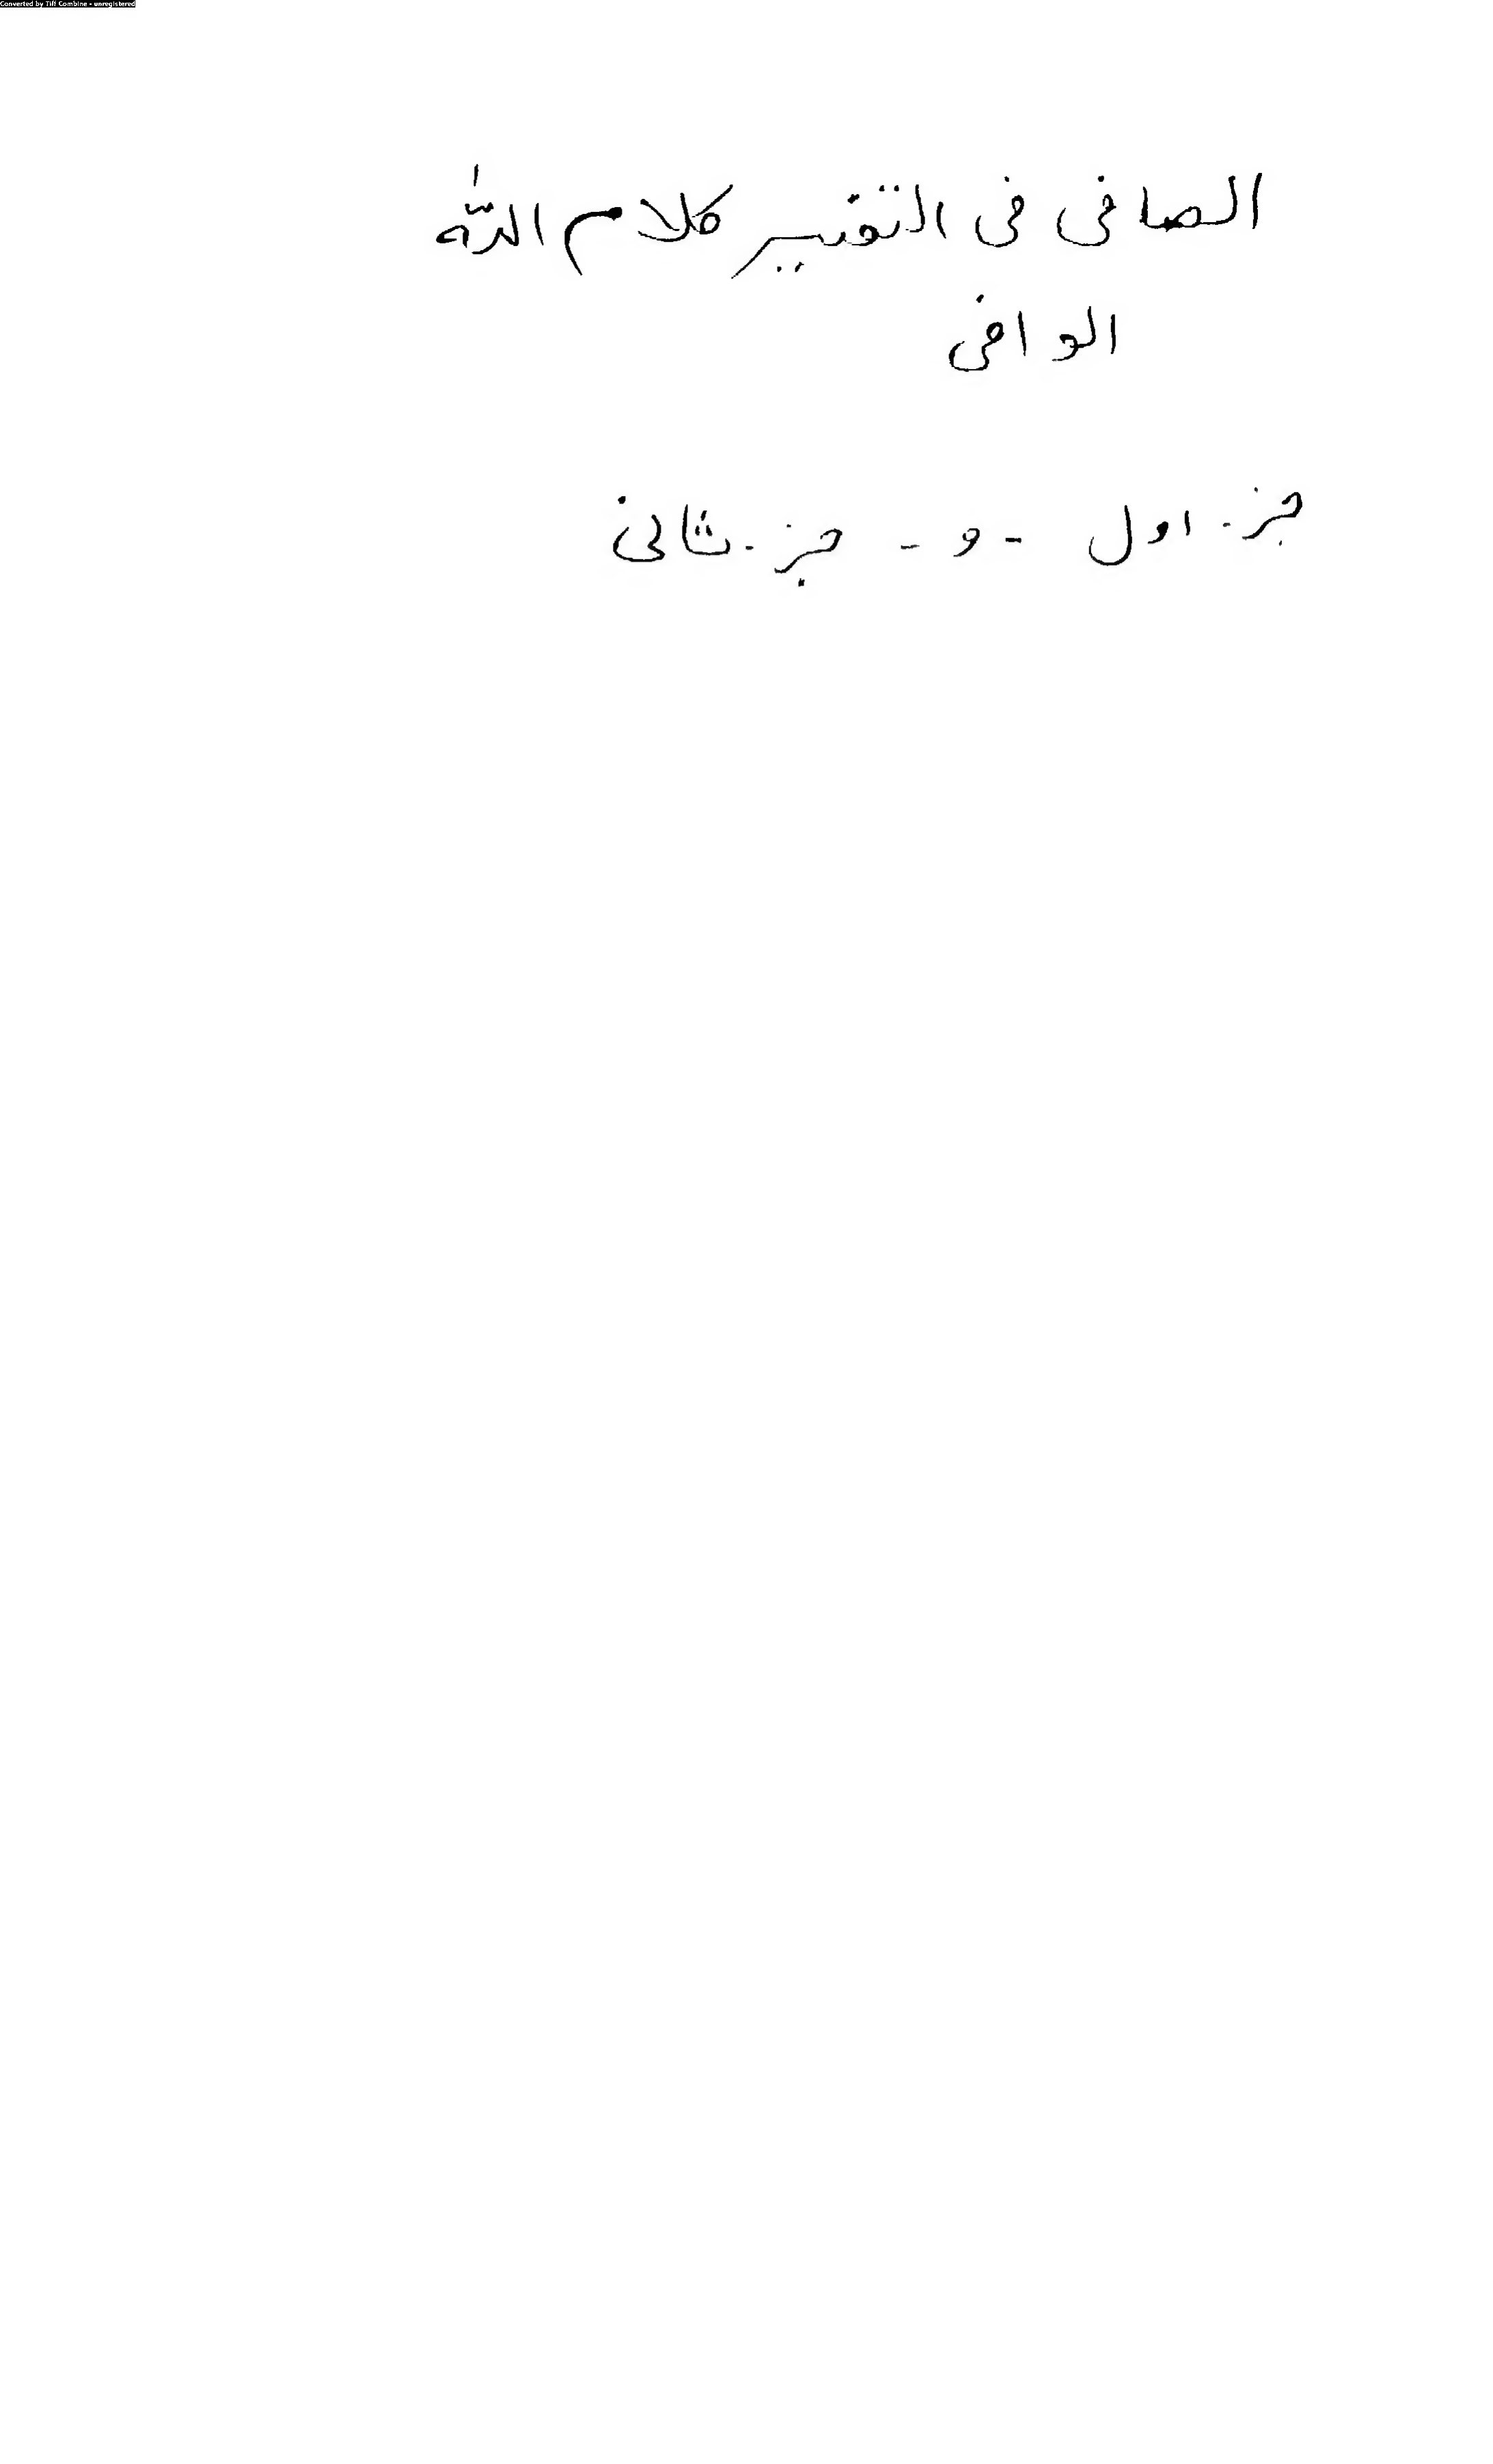 Converted by Tiff Combine - unregistered
الصافی فی التفسیر کلام اللّٰه
الوافی
جز ـ اول - و - جز ـ ثانی